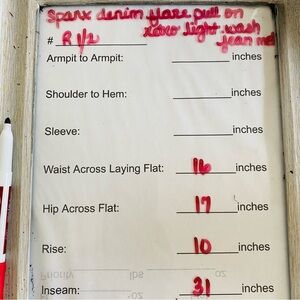 Spanx denim flare pull on
# R 1/2 retro light wash
jean med
Armpit to Armpit: inches
Shoulder to Hem: inches
Sleeve: inches
Waist Across Laying Flat: 16 inches
Hip Across Flat: 17 inches
Rise: 10 inches
Priority lbs oz
Inseam: 31 inches
oz